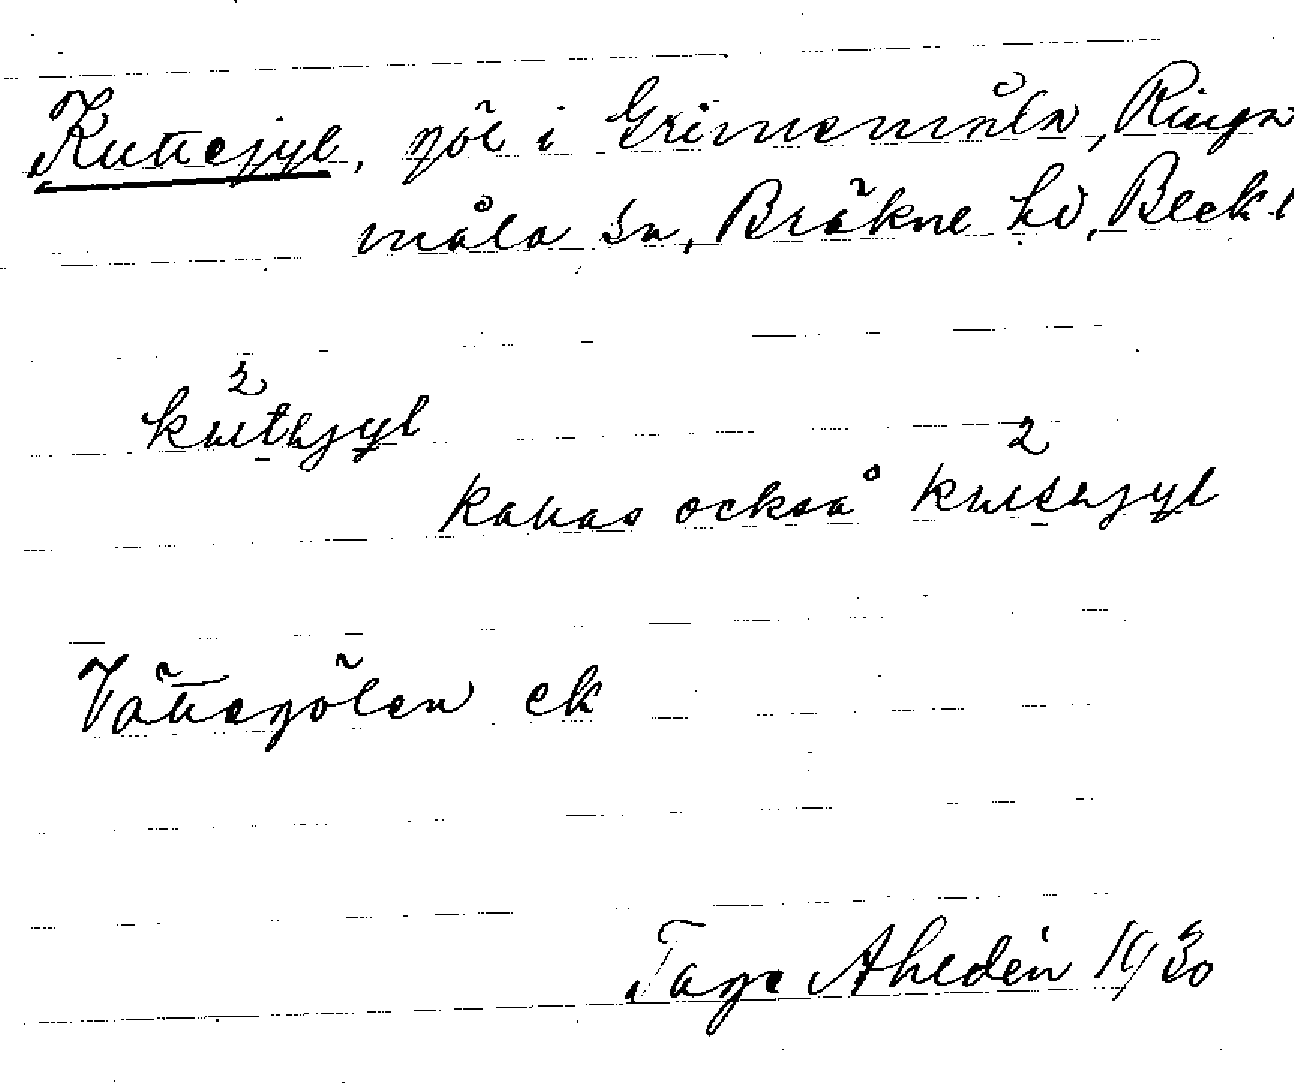 Kuttejyl, göl i Grimsmåla, Ringa
måla sn, Bräkne hd, Bleck.
2
kuttejyl
2
Kallas också kuttejyl
Vättagölen ek
Tage Ahldén 1930